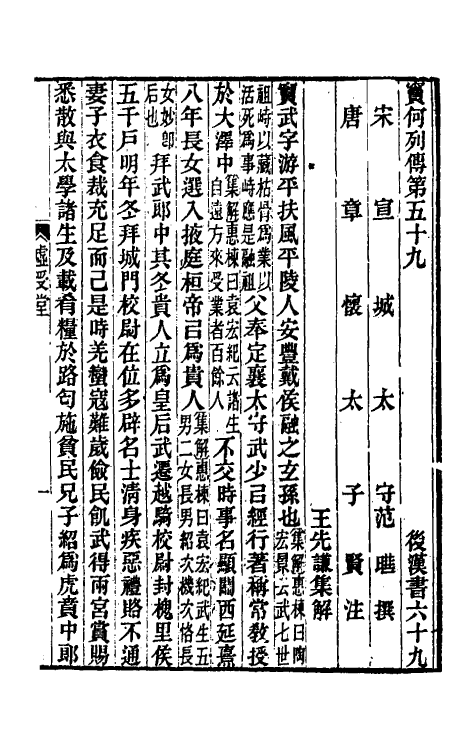 竇何列傳第五十九　後漢書六十九
宋宣城太守范曄撰
唐章懷太子賢注
王先謙集解
竇武字游平扶風平陵人安豐戴侯融之玄孫也集解惠棟曰陶宏景云武七世
祖時以藏枯骨爲業以活死爲事時應是融祖父奉定襄太守武少㠯經行著稱常教授
於大澤中集解惠棟曰袁宏紀云諸生自遠方來受業者百餘人不交時事名顯關西延熹
八年長女選入掖庭桓帝㠯爲貴人集解惠棟曰袁宏紀武生五男二女長男紹次機次恪長
女妙卽后也拜武郎中其冬貴人立爲皇后武遷越騎校尉封槐里侯
五千戶明年冬拜城門校尉在位多辟名士清身疾惡禮賂不通
妻子衣食裁充足而已是時羌蠻寇難歲儉民飢武得兩宮賞賜
悉散與太學諸生及載肴糧於路匄施貧民兄子紹爲虎賁中郎
虛受堂
一